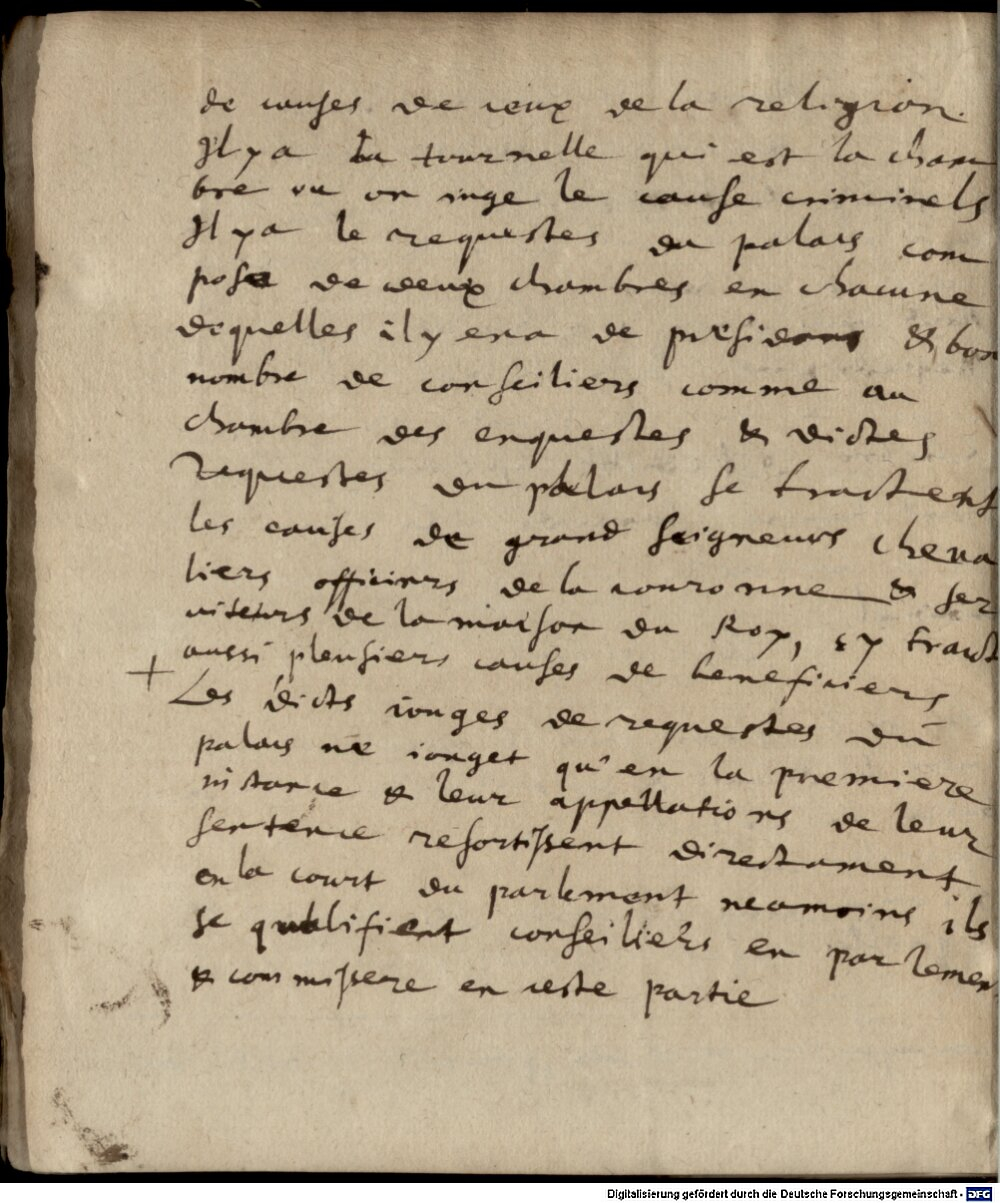 de causes de ceux de la religion.
Il y a la tournelle qui est la cham
bre ou on iuge le cause criminels
Il y a le requestes du palais com
pose de deux chambres en chacune
dequelles il y en a de presidens & bon
nombre de conseiliers comme au
chambre des enquestes & dictes
requestes du palais se tractent
les causes de grand seigneurs cheua
liers officiers de la couronne & ser
uiteurs de la maison du Roy, & y traict
aussi pleusiers causes de beneficiers
+ Les dicts iouges de requestes du
palais ne iouget qu'en la premiere
instance & leur appellations de leur
sentence resortissent directament
en la court du parlement neamoins ils
se qualifient conseiliers en parlemen
& commissere en ceste partie
Digitalisierung gefördert durch die Deutsche Forschungsgemeinschaft - DFG